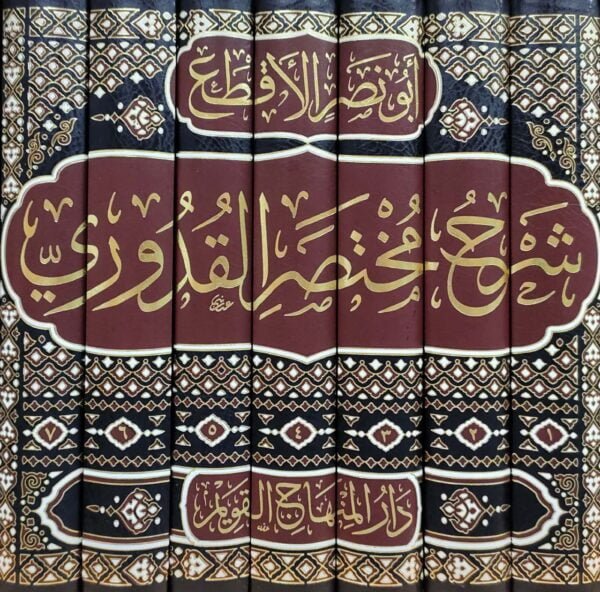 أبو نصر الأقطع
شرح مختصر القدوري
١ ٢ ٣ ٤ ٥ ٦ ٧
دار المنهاج القويم